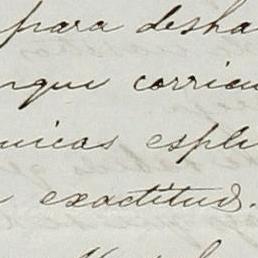 para desha
nque corrien
nicas espli
exactitud.